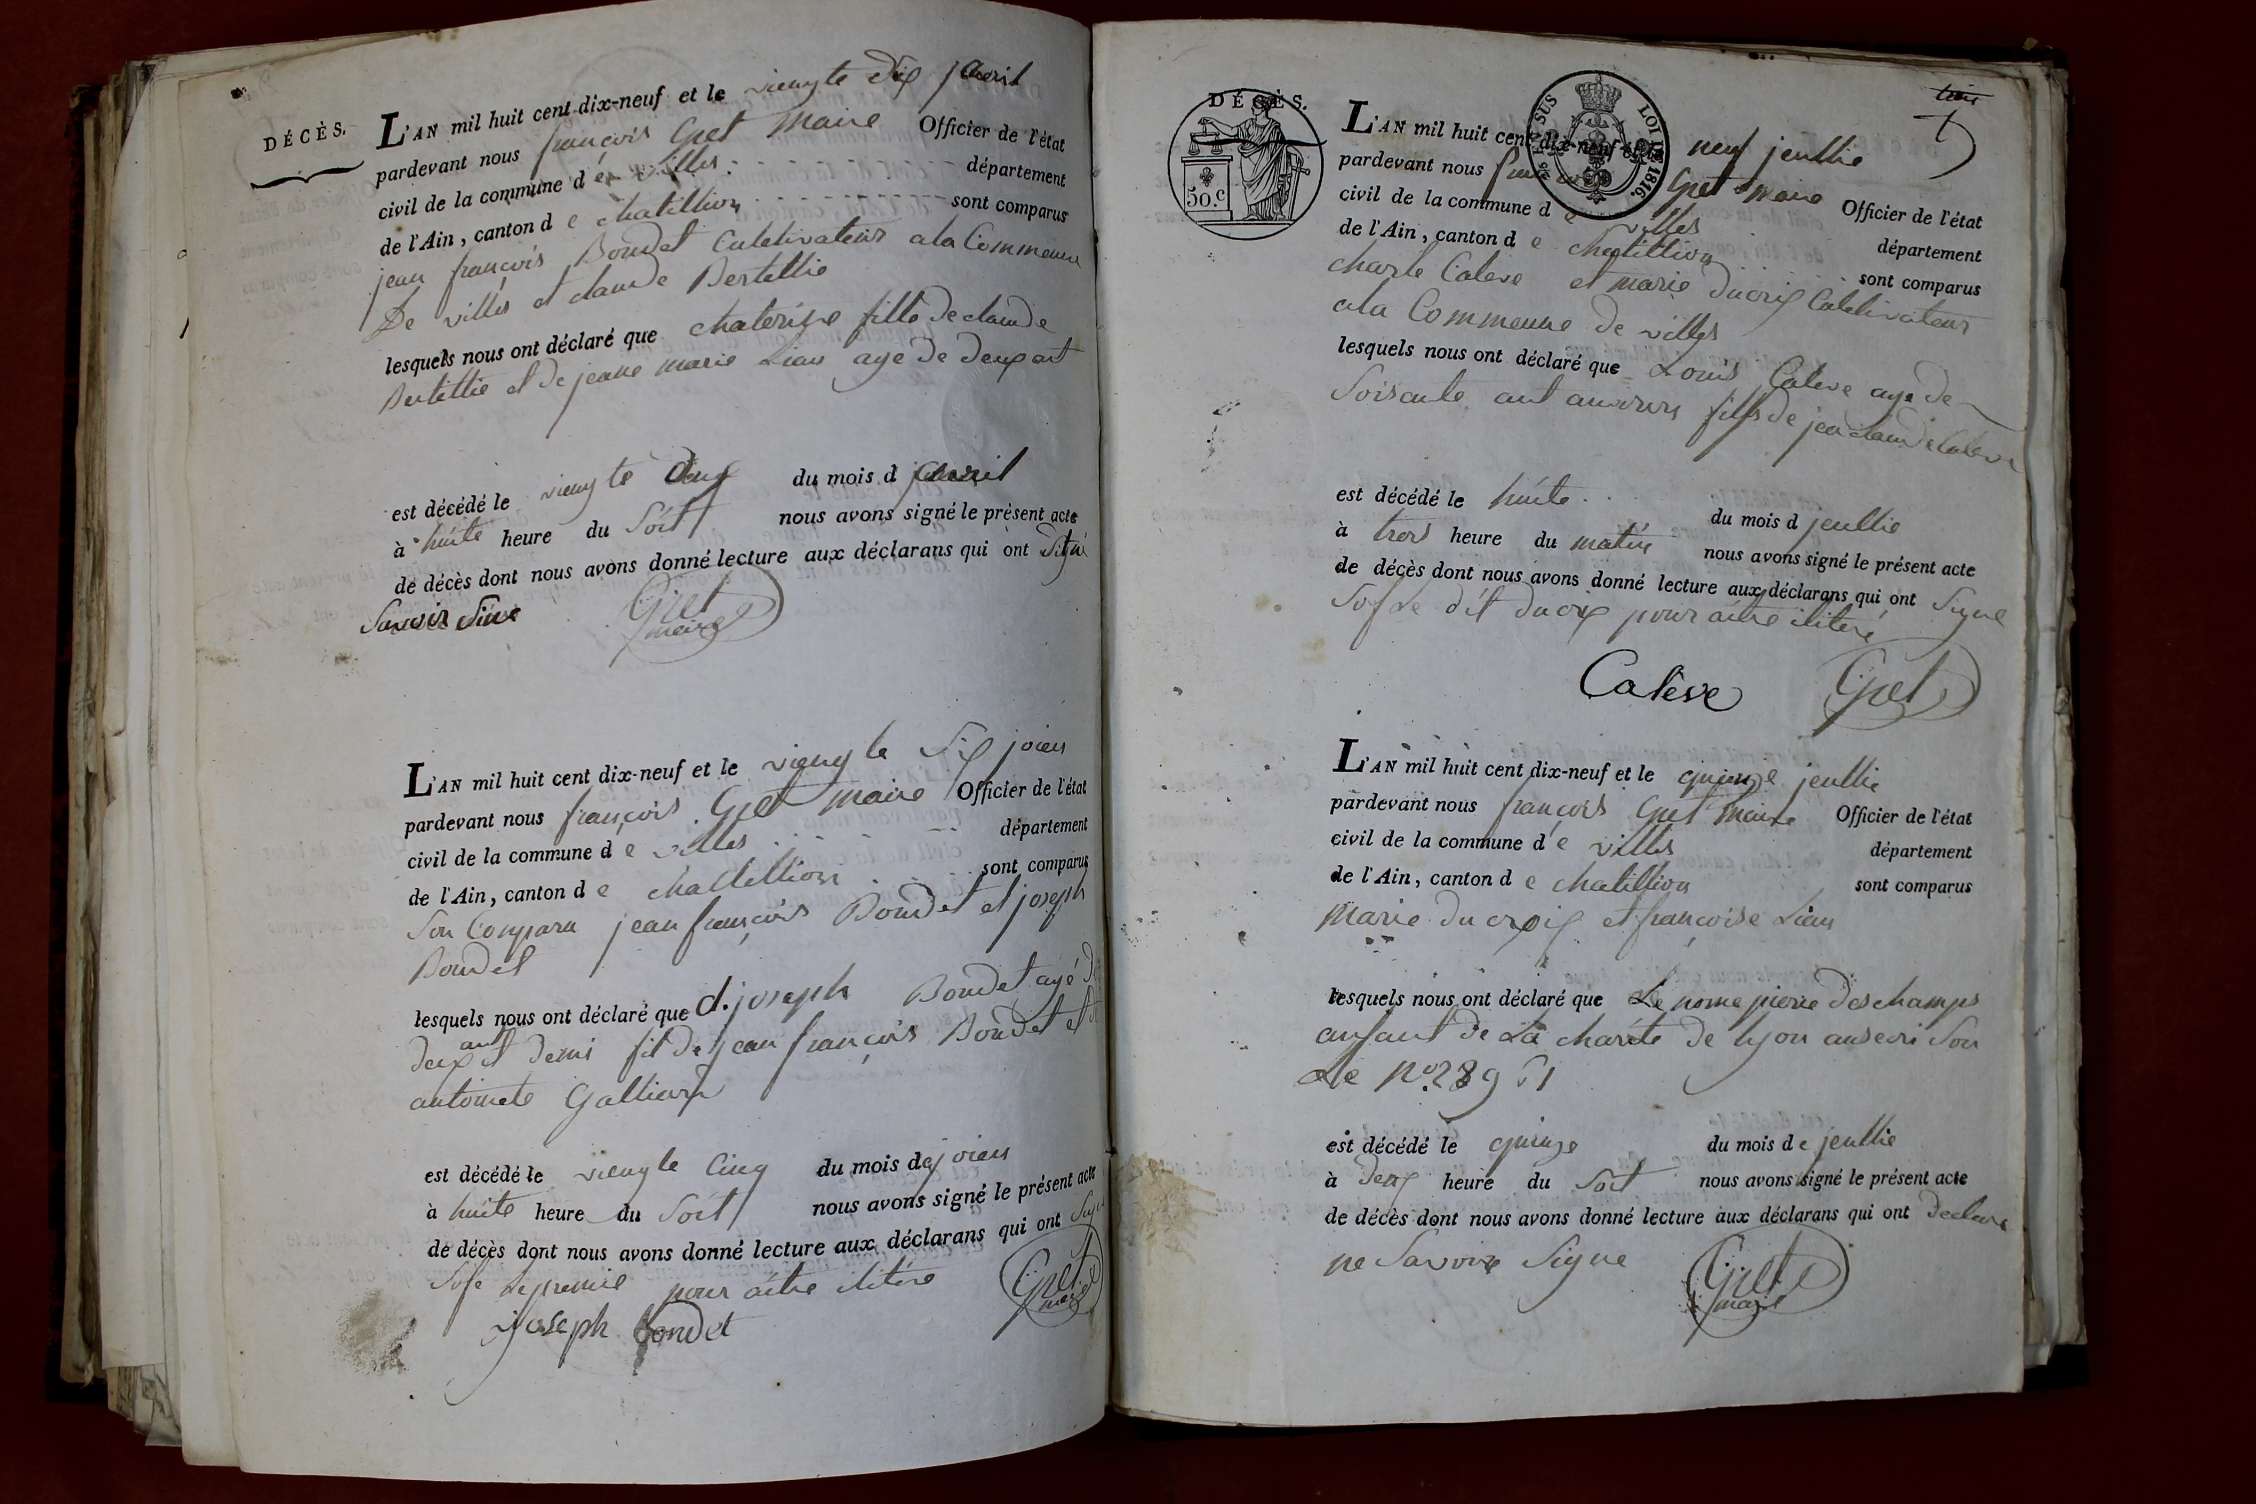 DÉCÈS.
L'AN mil huit cent dix-neuf et le viengte dix avril
pardevant nous françois Gret Maire Officier de l'état
civil de la commune d é villes département
de l'Ain, canton d e chatillion sont comparus
jean françois Boudet Culetivateur a la Commeune
De villes et claude Bertellie
lesquels nous ont déclaré que chaterine fille de claude
Bertellie et de jeane marie Lian agé de deux ant
est décédé le viengte deux du mois d avril
à huite heure du Soit nous avons signé le présent acte
de décès dont nous avons donné lecture aux déclarans qui ont
Savoir Sine Gret
maire
L'AN mil huit cent dix-neuf et le viengte Six joien
pardevant nous françois Gret maire Officier de l'état
civil de la commune d e villes département
de l'Ain, canton d e chatillion sont comparus
Son Comparu jean françois Boudet et joseph
Boudet
lesquels nous ont déclaré que d. joseph Boudet agé
deux ant et demi fil de jean françois Boudet et
antoinete Galliard
est décédé le viengte Cinq du mois de joien
à huite heure du Soit nous avons signé le présent acte
de décès dont nous avons donné lecture aux déclarans qui ont
Sofe Le premie pour aitre ilitere Gret
maire
joseph bondet
DÉCÈS.
50.c
EN SUS LOI DE 1816.
L'AN mil huit cent dix-neuf et le neuf jeullie
pardevant nous françois Gret maire Officier de l'état
civil de la commune d e villes département
de l'Ain, canton d e chatillion sont comparus
charle Caleve et marie ducrix Culetivateur
a la Commeune De villes
lesquels nous ont déclaré que Louis Caleve agé de
Soisante ant fills de jean claude Caleve
est décédé le huite du mois d jeullie
à trois heure du matin nous avons signé le présent acte
de décès dont nous avons donné lecture aux déclarans qui ont Signe
Sofe Le dit pour aitre iliteré
Calève Gret
L'AN mil huit cent dix-neuf et le quienze jeullie
pardevant nous françois Gret maire Officier de l'état
civil de la commune d é villes département
de l'Ain, canton d e chatillion sont comparus
Marie du croix et françoise Lian
lesquels nous ont déclaré que Le nome pierre Deschamps
anfant de La charite de Lyon anseri Son
Le No
est décédé le quienze du mois d e jeullie
à deux heure du Soit nous avons signé le présent acte
de décès dont nous avons donné lecture aux déclarans qui ont declare
ne Savoire Signe Gret
maire